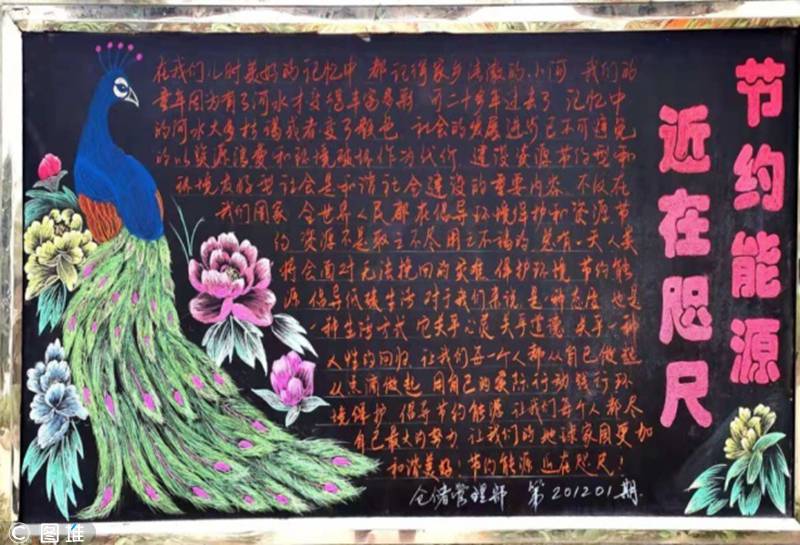 节约能源
近在咫尺
在我们儿时美好的记忆中 都记得家乡清澈的小河 我们的
童年因为有了河水才变得丰富多彩 可二十多年过去了 记忆中
的河水大多枯竭或者变了颜色 社会的发展进步已不可避免
的以资源浪费和环境破坏作为代价 建设资源节约型和
环境友好型社会是和谐社会建设的重要内容 不仅在
我们国家 全世界人民都在倡导环境保护和资源节
约 资源不是取之不尽用之不竭的 总有一天人类
将会面对无法挽回的灾难 保护环境 节约能
源 倡导低碳生活 对于我们来说 是一种态度 也是
一种生活方式 它关乎心灵 关乎道德 关乎一种
人性的回归 让我们每一个人都从自己做起
从点滴做起 用自己的实际行动践行环
境保护 倡导节约能源 让我们每个人都尽
自己最大的努力 让我们的地球家园更加
和谐美好！节约能源 近在咫尺！
仓储管理部 第201201期
© 图推